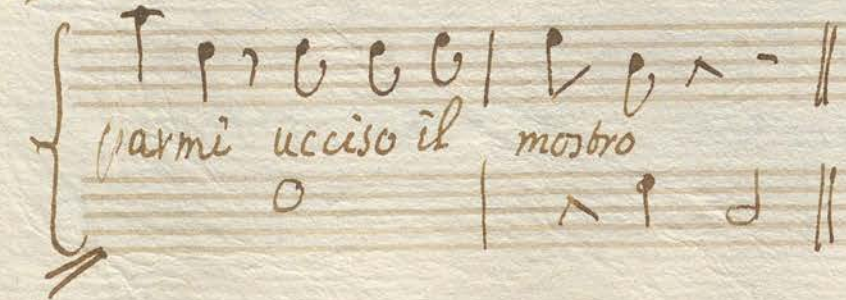 parmi ucciso il mostro